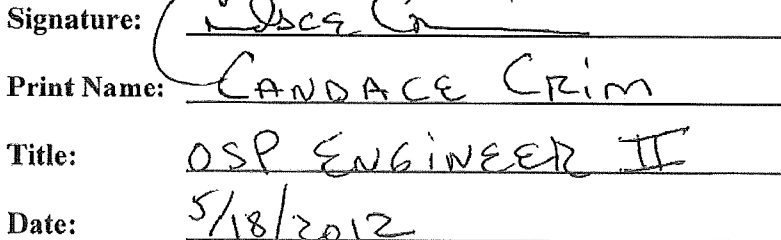 Signature:
Print Name: CANDACE CRIM
Title: OSP ENGINEER II
Date: 5/18/2012